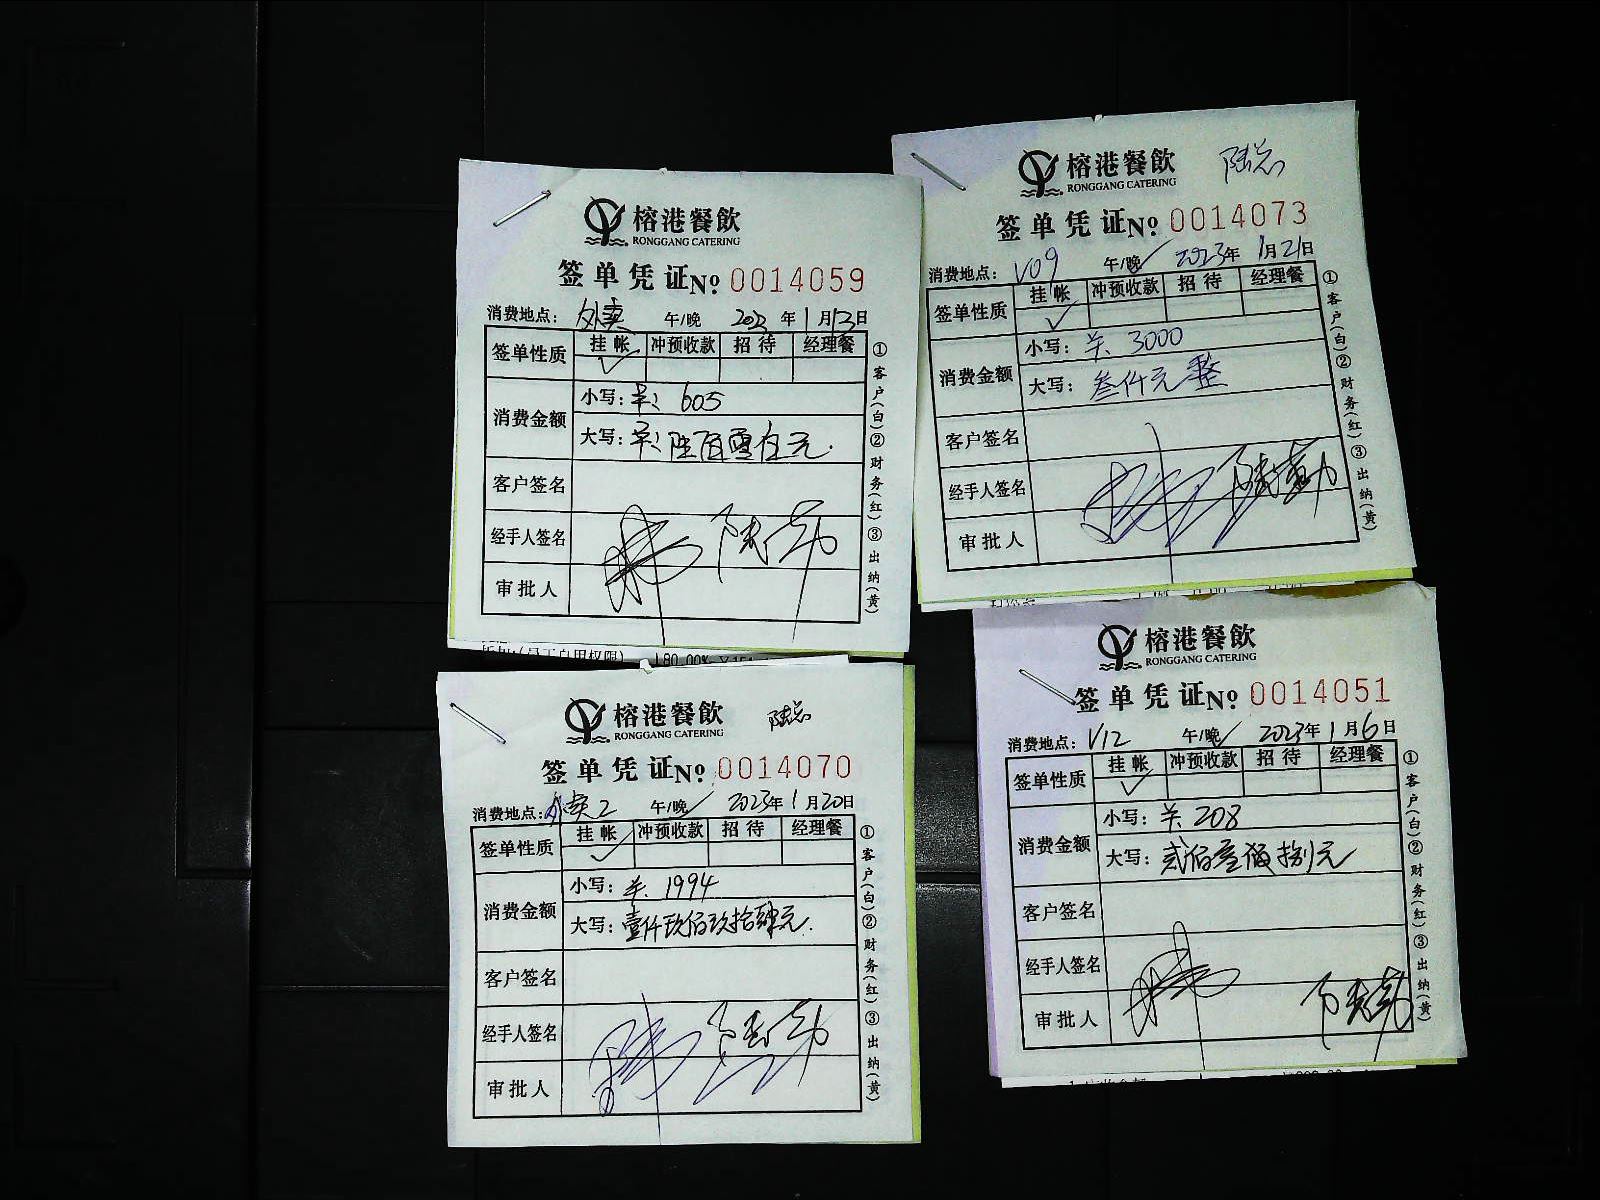 榕港餐飲
RONGGANG CATERING
签单凭证 No 0014059
消费地点：外卖 午/晚 2023年1月13日
签单性质 挂帐 冲预收款 招待 经理餐
✓
消费金额
小写：羊：605
大写：羊：陆佰零伍元.
客户签名
经手人签名 陆劲
审批人
①客户(白)②财务(红)③出纳(黄)
榕港餐飲 陆总
RONGGANG CATERING
签单凭证 No 0014073
消费地点：V09 午/晚✓ 2023年1月21日
签单性质 挂帐 冲预收款 招待 经理餐
✓
消费金额
小写：羊. 3000
大写：叁仟元整
客户签名
经手人签名 陆劲
审批人
①客户(白)②财务(红)③出纳(黄)
榕港餐飲 陆总
RONGGANG CATERING
签单凭证 No 0014070
消费地点：外卖2 午/晚✓ 2023年1月20日
签单性质 挂帐 冲预收款 招待 经理餐
✓
消费金额
小写：羊. 1994
大写：壹仟玖佰玖拾肆元.
客户签名
经手人签名 陆劲
审批人
①客户(白)②财务(红)③出纳(黄)
榕港餐飲
RONGGANG CATERING
签单凭证 No 0014051
消费地点：V12 午/晚✓ 2023年1月6日
签单性质 挂帐 冲预收款 招待 经理餐
✓
消费金额
小写：羊. 208
大写：贰佰零捌元
客户签名
经手人签名
审批人 陆劲
①客户(白)②财务(红)③出纳(黄)